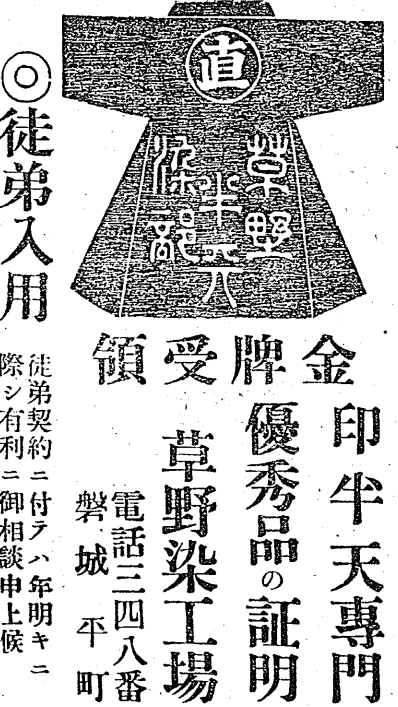 直
草野
半天
染部
金牌受領
印半天專門
優秀品の証明
草野染工場
電話三四八番
磐城平町
◎徒弟入用
徒弟契約ニ付テハ年明キニ
際シ有利ニ御相談申上候